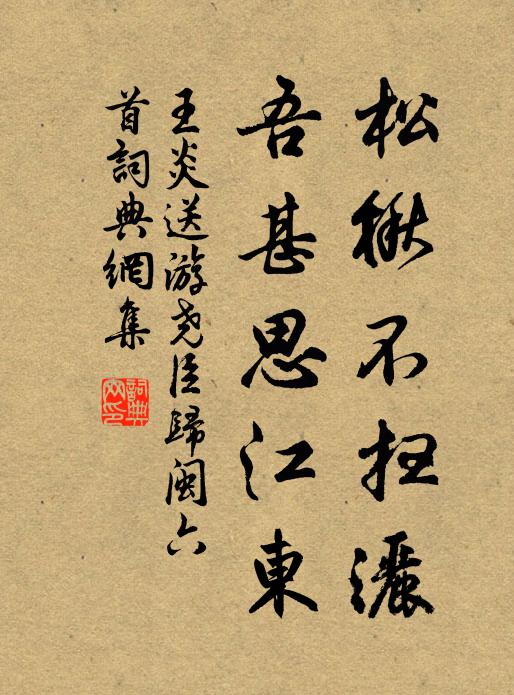 松楸不扫灑
吾甚思江東
王炎送游尧臣歸闽六
首詞典網集
詞典網印